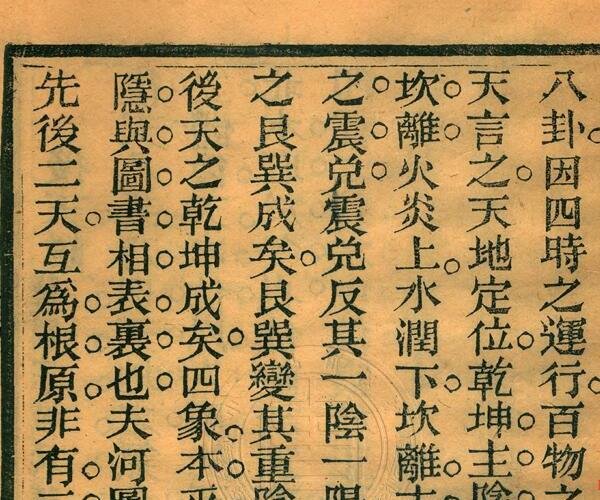 八卦因四時之運行百物之
天言之天地定位乾坤主陰
坎離火炎上水潤下坎離
之震兌震兌反其一陰一陽
之艮巽成矣艮巽變其重陰
後天之乾坤成矣四象本乎
隱與圖書相表裏也夫河圖
先後二天互為根原非有